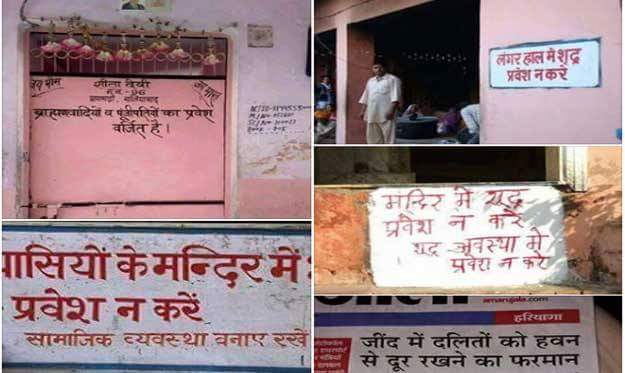 जय भीम
शीला देवी
जय भारत
म.न.-96
ब्राह्मणवादियों व पूंजीपतियों का प्रवेश
वर्जित है।
लंगर हाल में शूद्र
प्रवेश न करें
मन्दिर में शूद्र
प्रवेश न करें
शूद्र अवस्था में
प्रवेश न करे
वासियों के मन्दिर में
प्रवेश न करें
सामाजिक व्यवस्था बनाए रखें
amarujala.com
हरियाणा
जींद में दलितों को हवन
से दूर रखने का फरमान